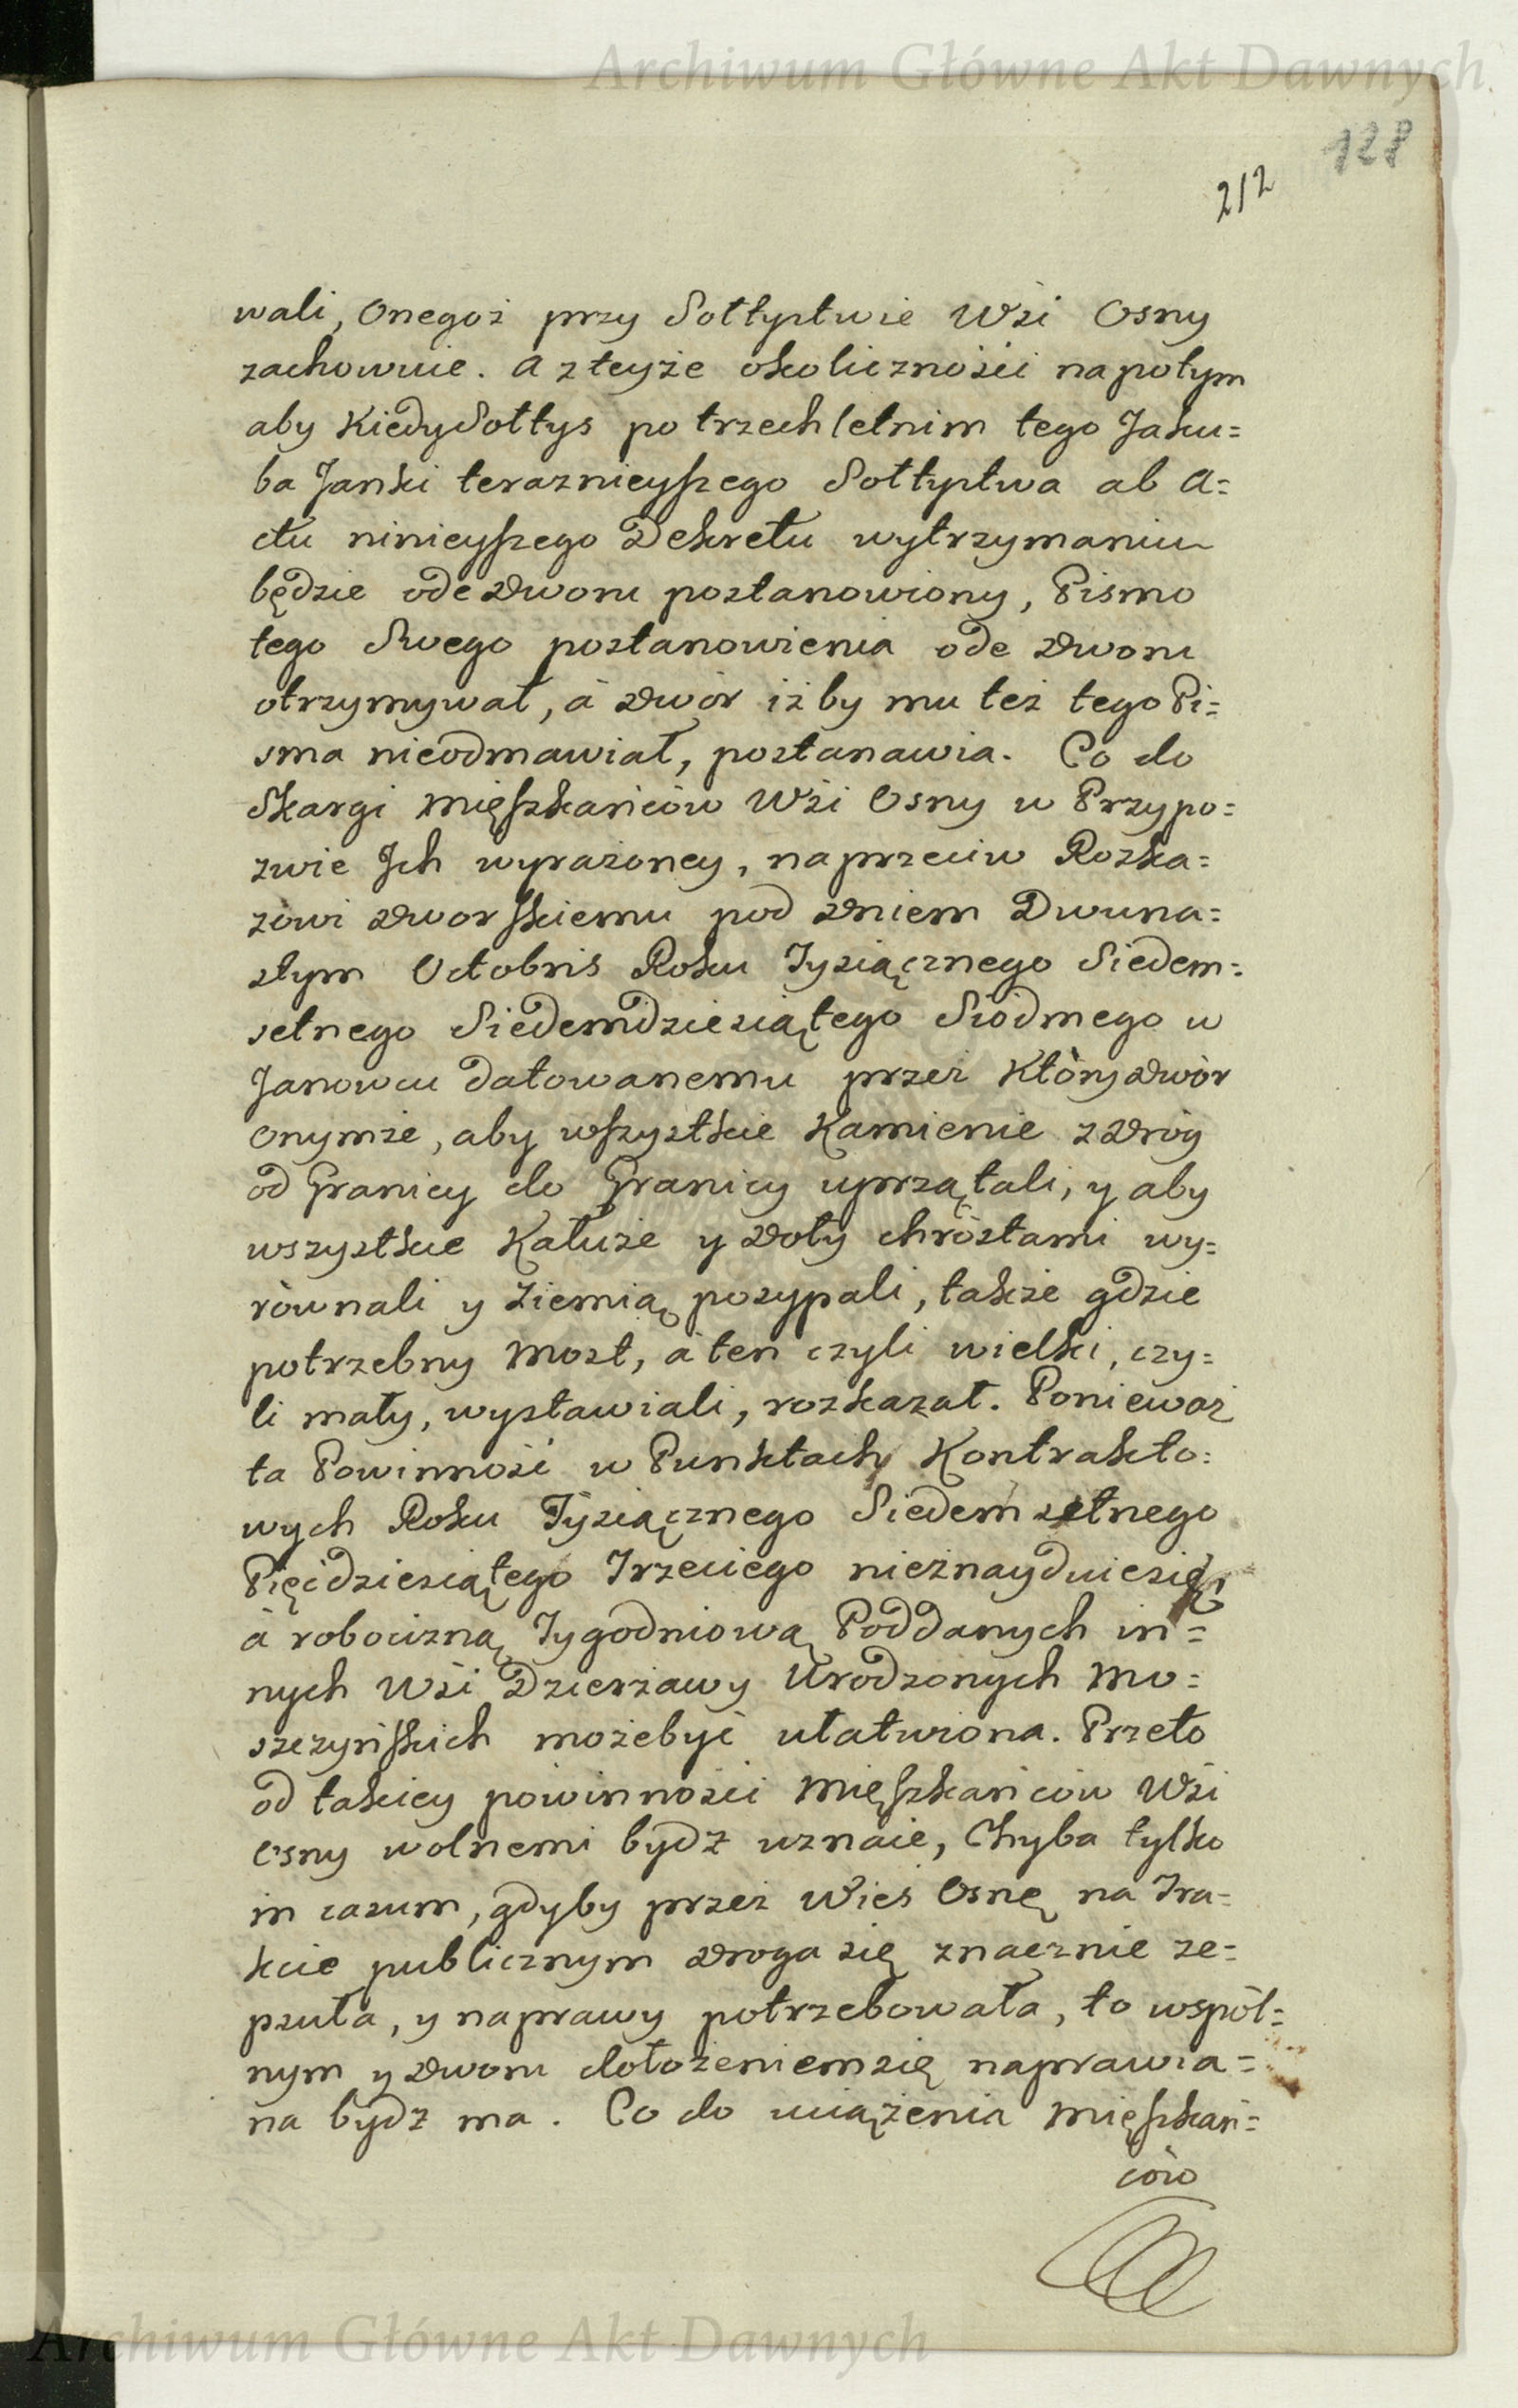 Archiwum Główne Akt Dawnych
128
212
wali, Onegoż przy Sołtystwie Wśi Osny
zachowuie. a z teyże okolicznośći napotym
aby Kiedy Sołtys po trzechletnim tego Jaku=
ba Janki teraznieyszego Sołtystwa ab A=
ctu ninieyszego Dekretu wytrzymaniu
będzie ode dworu postanowiony, Pismo
tego Swego postanowienia ode dworu
otrzymywał, á dwór iżby mu też tego Pi=
sma nieodmawiał, postanawia. Co do
Skargi Mięszkańców Wśi Osny w Przypo=
zwie Jch wyrażoney, naprzeciw Rozka=
zowi dworskiemu pod dniem Dwuna=
stym Octobris Roku Tysiącznego Siedem=
setnego Siedemdziesiątego Siódmego w
Janowcu datowanemu przez Który dwór
onymże, aby wszystkie Kamienie z dróg
od Granicy do Granicy uprzątali, y aby
wszystkie Kałuże y doły chróstami wy=
równali y ziemią posypali, także gdzie
potrzebny Most, á ten czyli wielki, czy=
li mały, wystawiali, rozkazał. Ponieważ
ta Powinność w Punktach Kontrakto=
wych Roku Tysiącznego Siedemsetnego
Pięćdziesiątego Trzeciego nieznayduiesię,
á robocizną Tygodniową Poddanych in=
nych Wśi Dzierżawy Urodzonych Mo=
szczyńskich możebyć ułatwiona. Przeto
od takiey powinnośći Mięszkańców Wśi
Osny wolnemi bydź uznaie, Chyba tylko
in casum, gdyby przez Wieś Osnę na Tra=
kcie publicznym droga się znacznie ze=
psuła, y naprawy potrzebowała, to wspól=
nym y dworu dołożeniemsię naprawia=
na bydź ma. Co do uciążenia Mięszkań=
ców
Archiwum Główne Akt Dawnych